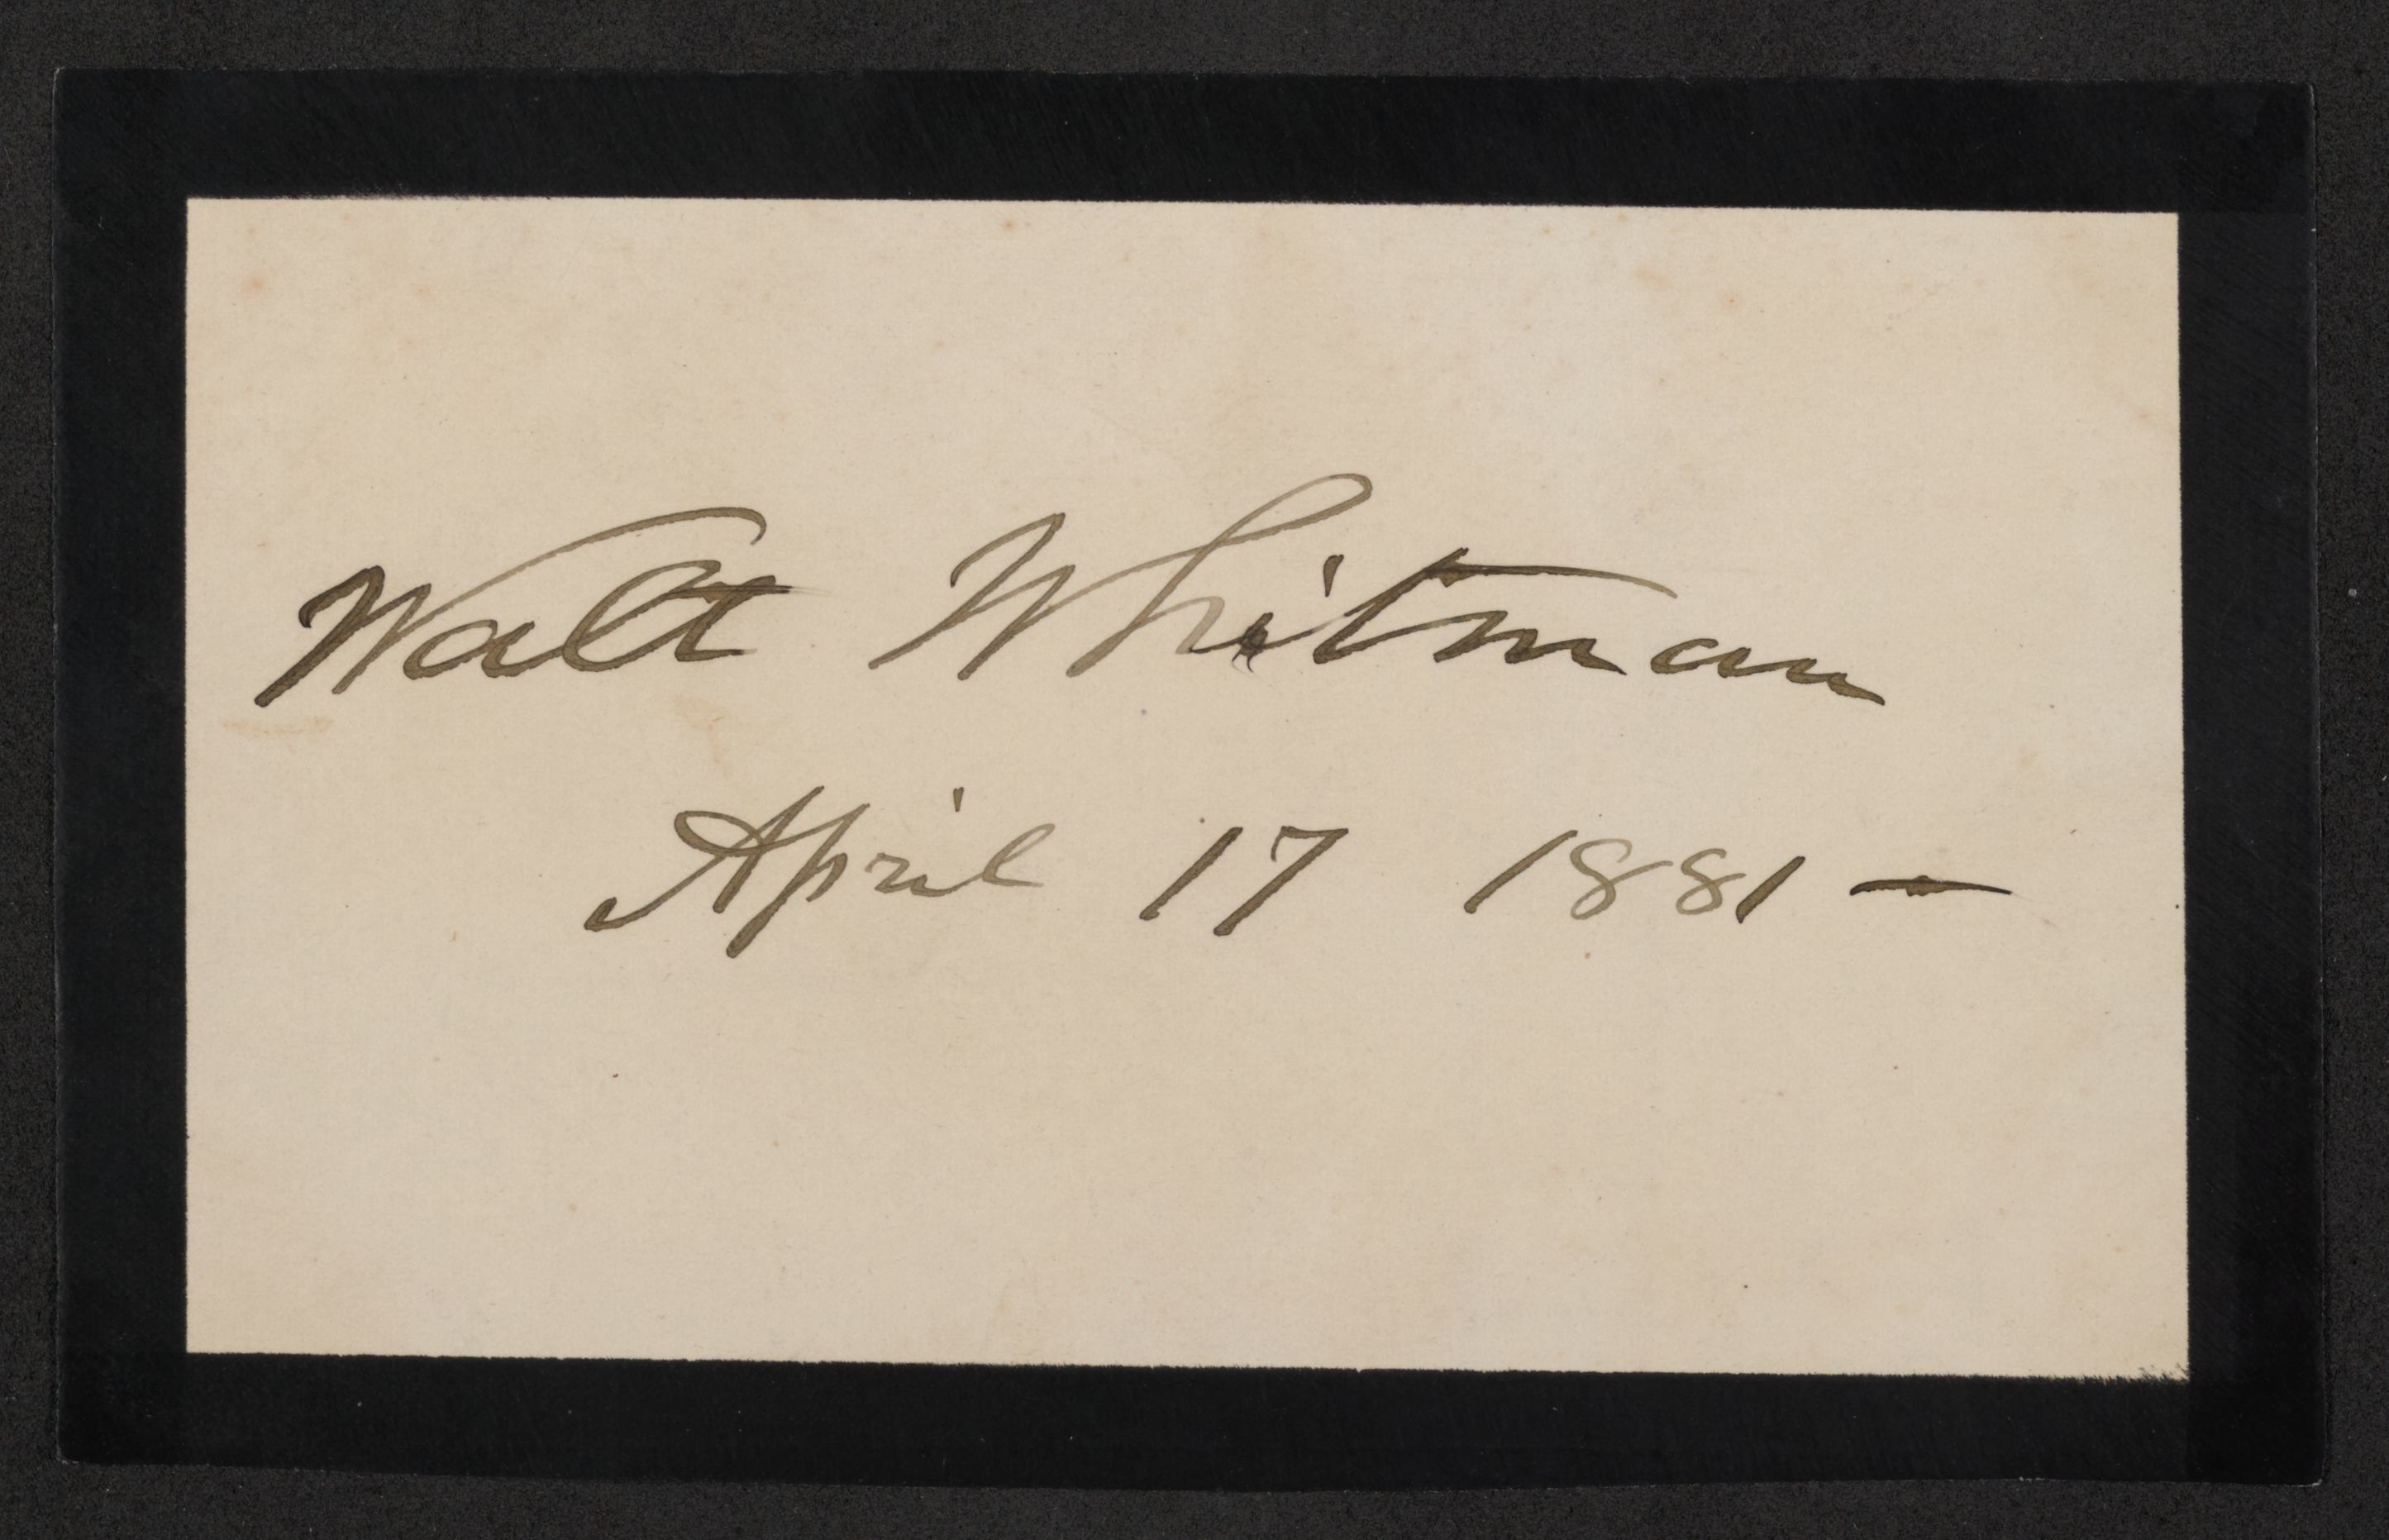 Walt Whitman
April 17 1881 —